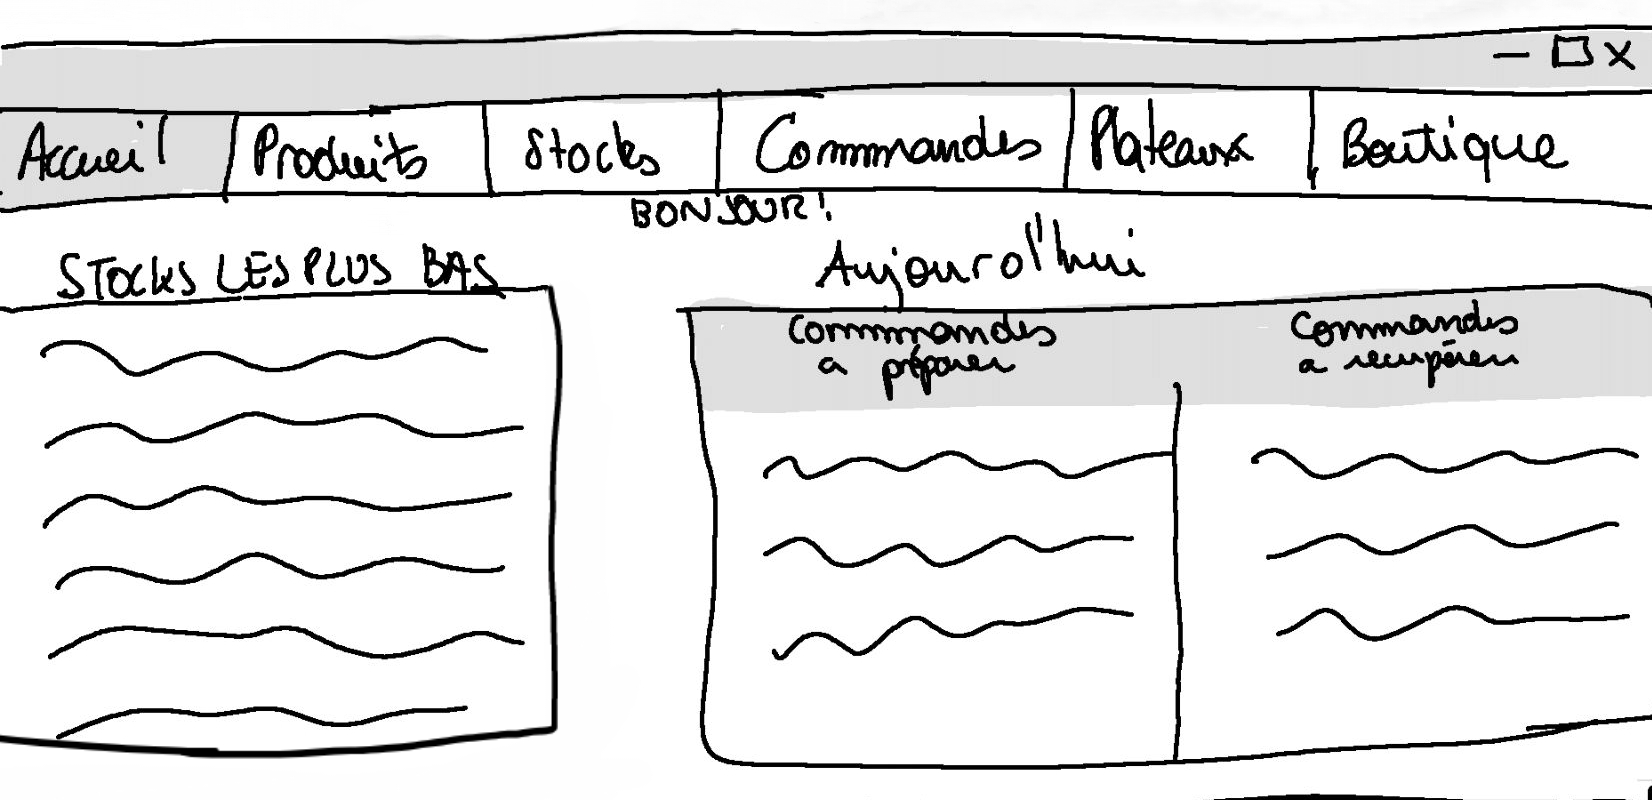 Accueil Produits Stocks Commandes Plateaux Boutique
BONJOUR!
STOCKS LES PLUS BAS
Aujourd'hui
Commandes
a préparer
Commandes
a recupérer